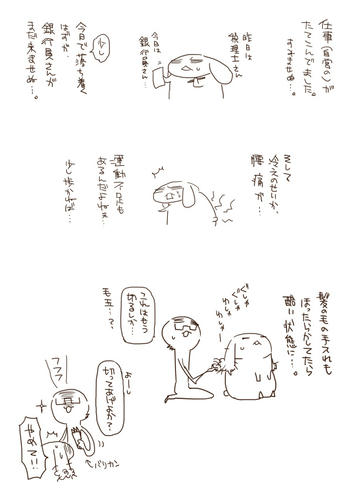 仕事(自営の)が
たてこんでました。
すみませぬ…。
昨日は
税理士さん
今日は
銀行員さん…
少し
今日で落ち着く
はずが
銀行員さんが
まだ来ませぬ…。
そして
冷えのせいか、
腰痛が…
運動不足も
あるんだよねぇ…
少し歩かねば…
髪の毛の手入れも
ほったらかしてたら
酷い状態に…。
ぐしゃ
ぐしゃ
わしゃ
わしゃー
これはもう
切るしか…
毛玉…?
よーし
切ってあげようか?
フフフ
←バリカン
やめて!!